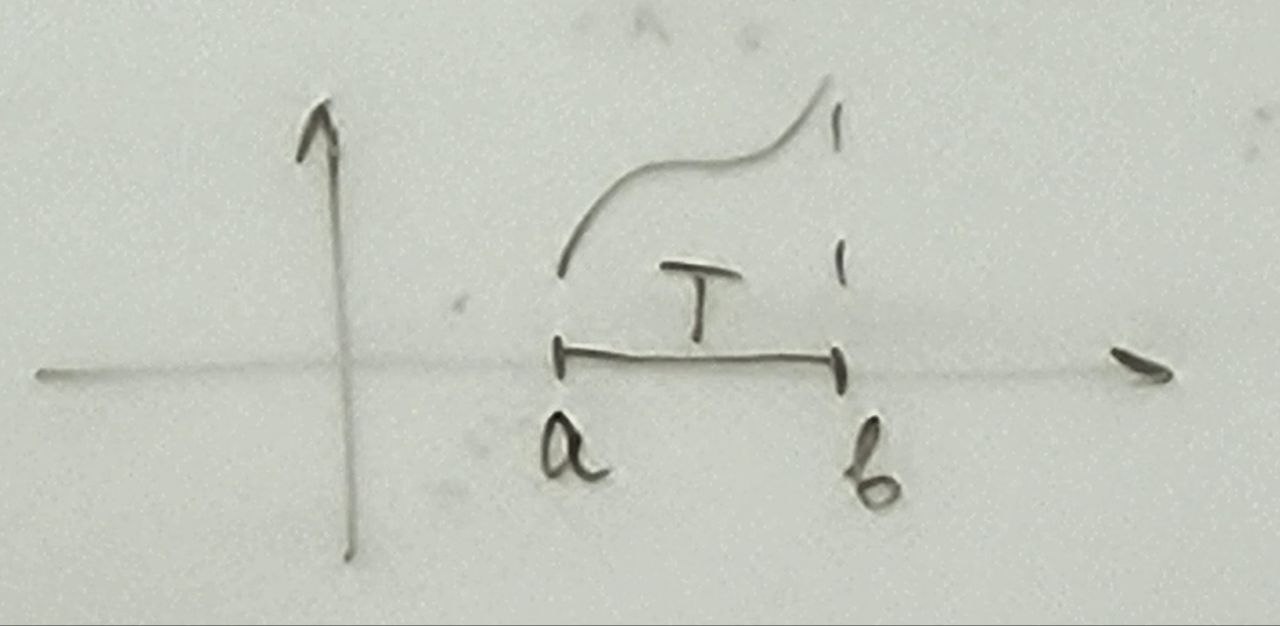 T
a b